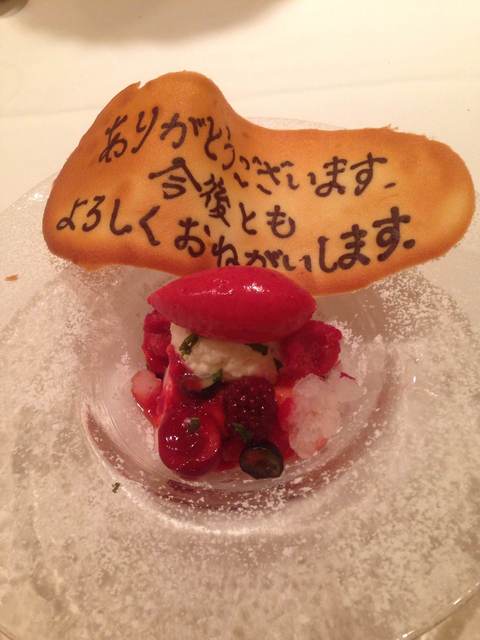 ありがとうございます.
今後とも
よろしくおねがいします.